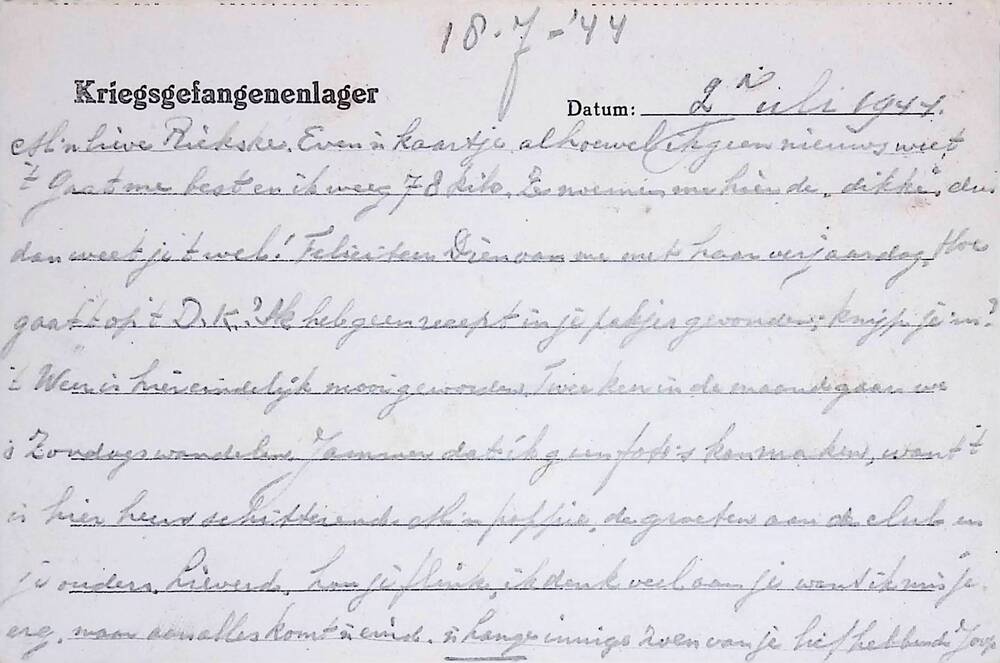 18-7-'44
Kriegsgefangenenlager
Datum: 2 Juli 1944.
M'n lieve Riekske. Even 'n kaartje alhoewel ik geen nieuws weet
't Gaat me best en ik weeg 78 kilo. Ze noemen me hier de „dikke", dus
dan weet je 't wel! Feliciteer Dien van me met haar verjaardag. Hoe
gaat 't op 't D.K.? Ik heb geen recept in je pakjes gevonden, knijp je 'm?
't Weer is hier eindelijk mooi geworden. Twee keer in de maand gaan we
's Zondags wandelen. Jammer dat ik geen foto's kan maken, want 't
is hier heus schitterend. M'n poppie, de groeten aan de club en
je ouders. Lieverd, hou je flink, ik denk veel aan je want ik mis je
erg, maar aan alles komt 'n eind. 'n lange innige zoen van je liefhebbende Joop